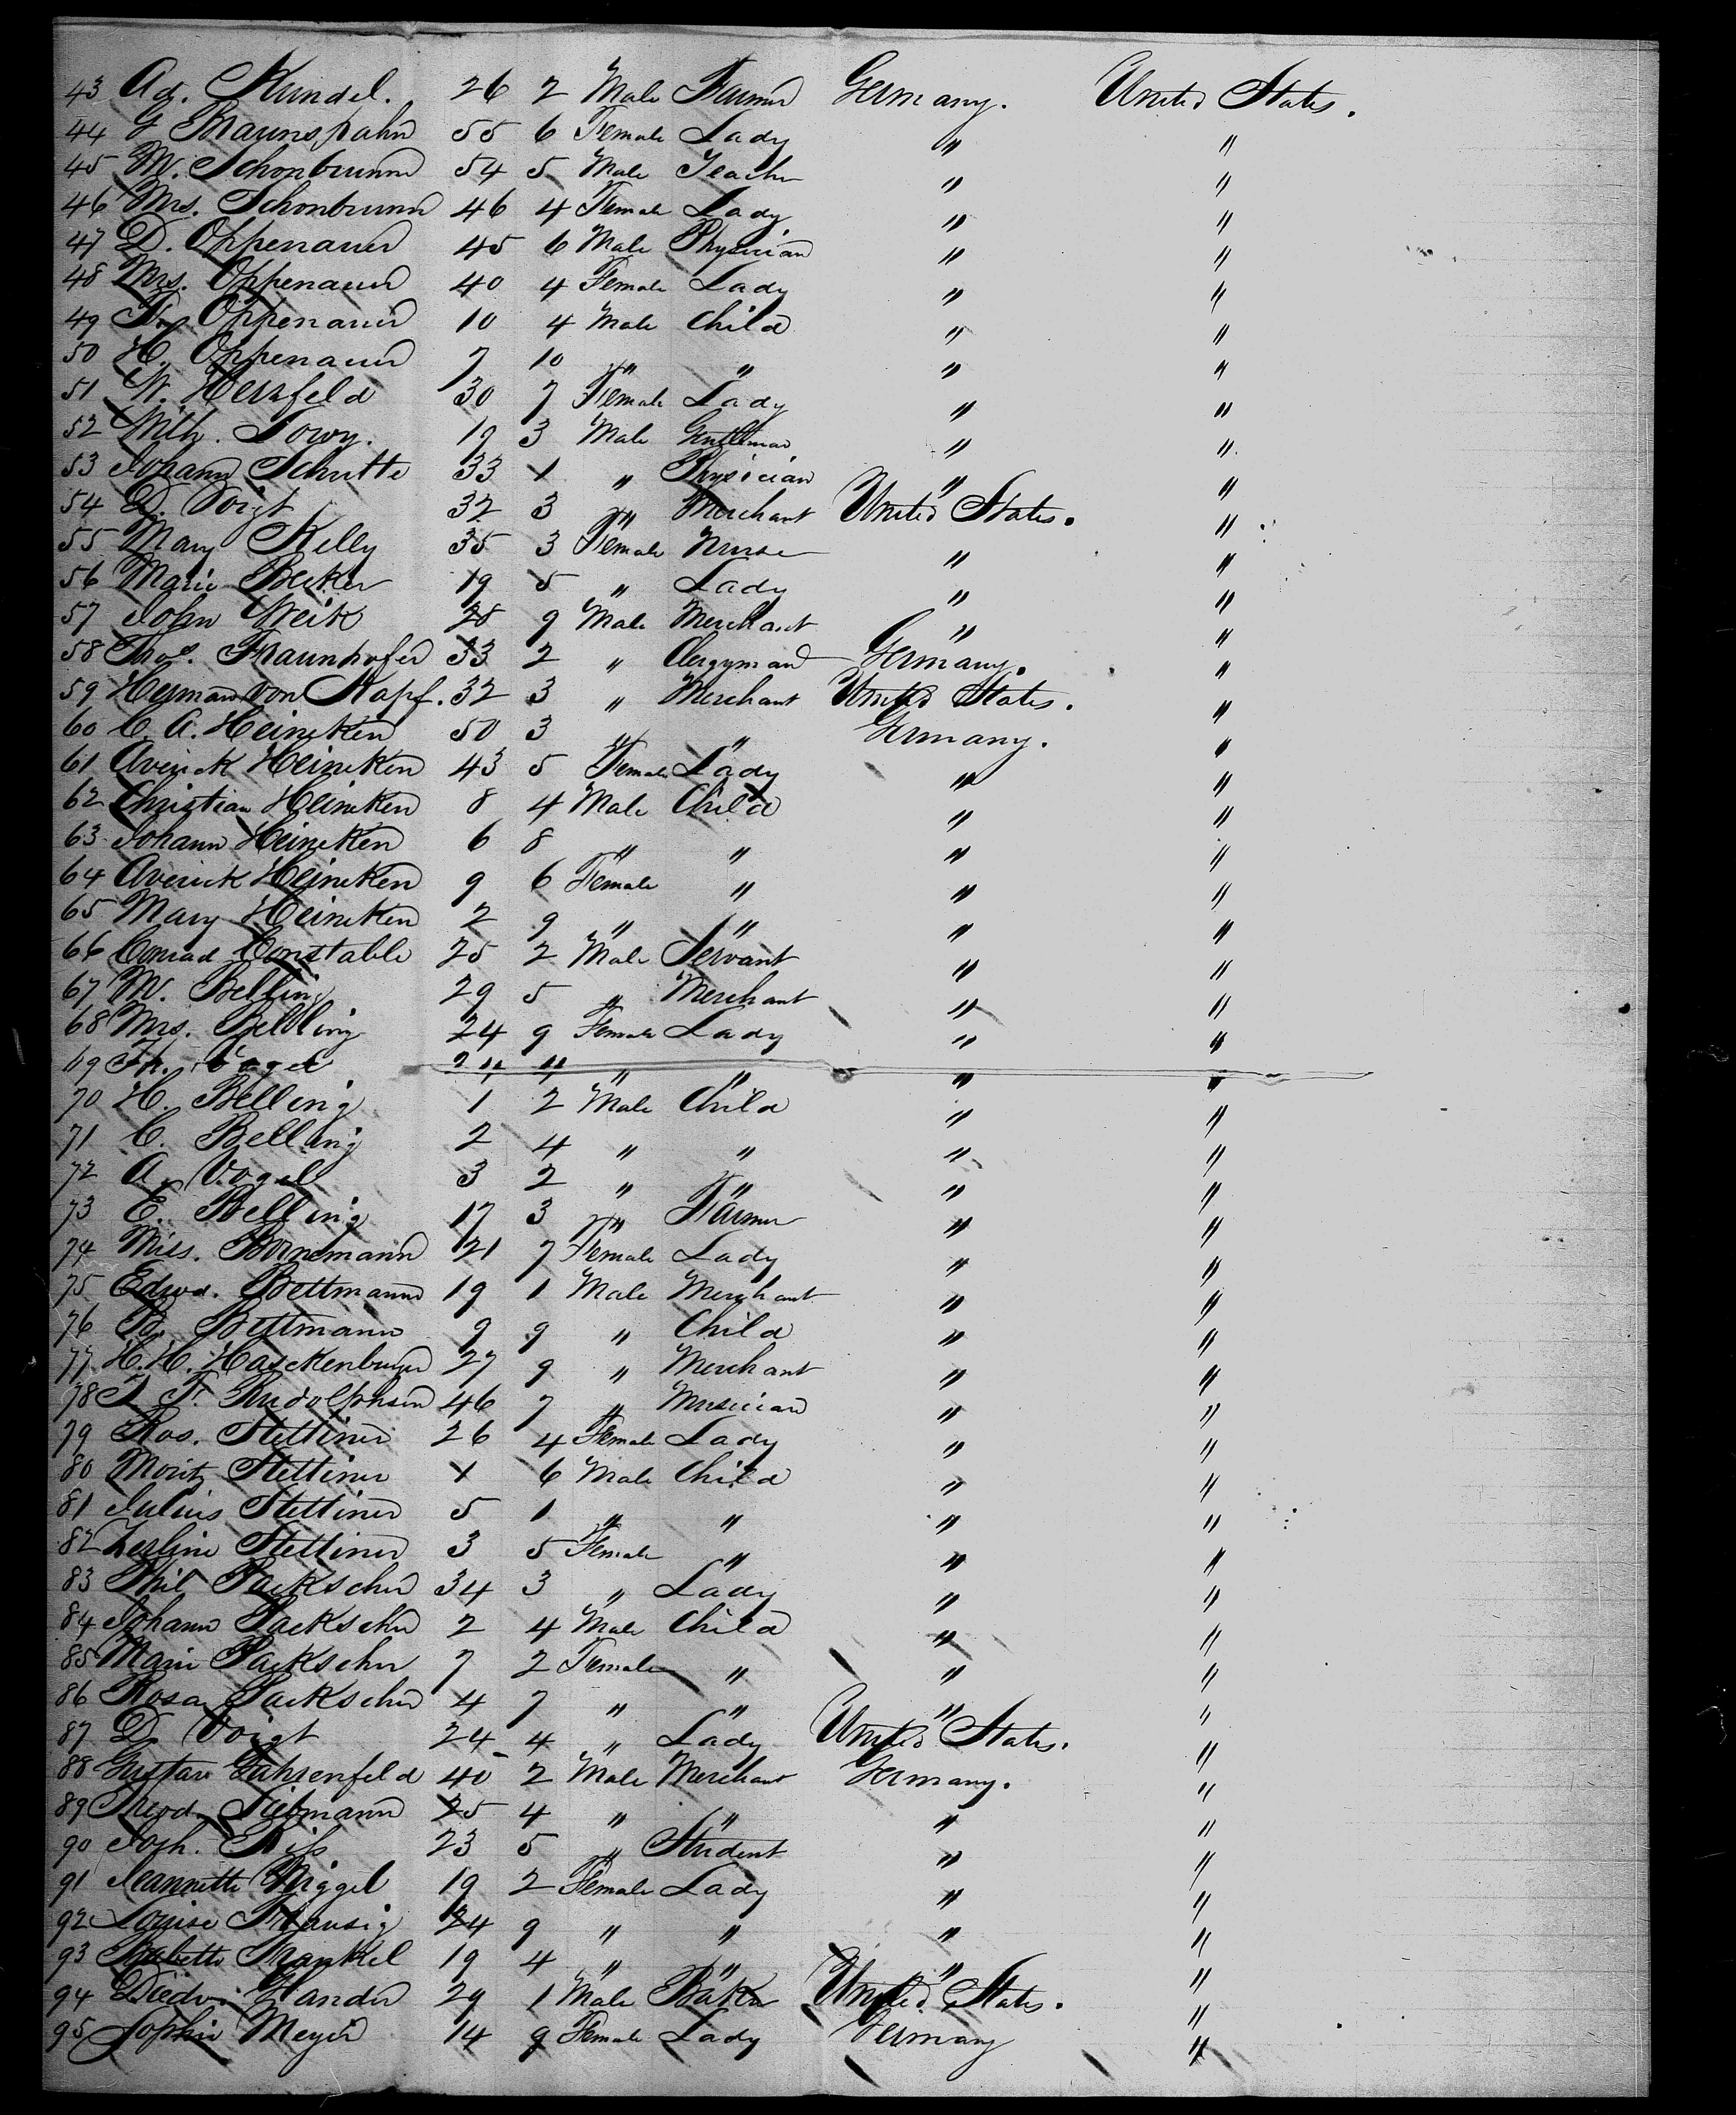 43 Ad. Kundel. 26 2 Male Farmer Germany. United States.
44 G Braunspahn 55 6 Female Lady " "
45 W. Schonbrunn 54 5 Male Teacher " "
46 Mrs. Schonbrunn 46 4 Female Lady " "
47 D. Oppenauer 45 6 Male Physician " "
48 Mrs. Oppenauer 40 4 Female Lady " "
49 F. Oppenauer 10 4 Male Child " "
50 H. Oppenauer 7 10 " " " "
51 W. Herzfeld 30 7 Female Lady " "
52 Wilh. Lowy. 19 3 Male Gentleman " "
53 Johann Schutte 33 1 " Physician " "
54 D. Voigt 32 3 " Merchant United States. "
55 Mary Kelly 35 3 Female Nurse " "
56 Marie Becker 19 5 " Lady " "
57 John Weik 28 9 Male Merchant " "
58 Thos. Fraunhofer 33 2 " Clergyman Germany. "
59 Herman von Kapf. 32 3 " Merchant United States. "
60 C. A. Heineken 50 3 " " Germany. "
61 Averick Heineken 43 5 Female Lady " "
62 Christian Heineken 8 4 Male Child " "
63 Johann Heineken 6 8 " " " "
64 Averick Heineken 9 6 Female " " "
65 Mary Heineken 2 9 " " " "
66 Conrad Constable 25 2 Male Servant " "
67 W. Belling 29 5 " Merchant " "
68 Mrs. Belling 24 9 Female Lady " "
69 Fr. Vogel 24 4 " " " "
70 H. Belling 1 2 Male Child " "
71 C. Belling 2 4 " " " "
72 A. Vogel 3 2 " " " "
73 E. Belling 17 3 " Farmer " "
74 Miss. Bornemann 21 7 Female Lady " "
75 Edwd. Bettmann 19 1 Male Merchant " "
76 B. Bettmann 9 9 " Child " "
77 H. H. Hasckenburger 27 9 " Merchant " "
78 J. Fr. Rudolphsen 46 7 " Musician " "
79 Ros. Stettiner 26 4 Female Lady " "
80 Moritz Stettiner 1 6 Male Child " "
81 Julius Stettiner 5 1 " " " "
82 Zerline Stettiner 3 5 Female " " "
83 Phil Packscher 34 3 " Lady " "
84 Johann Packscher 2 4 Male Child " "
85 Marie Packscher 7 2 Female " " "
86 Rosa Packscher 4 7 " " " "
87 D. Voigt 24 4 " Lady United States. "
88 Gustav Guhrenfeld 40 2 Male Merchant Germany. "
89 Theod. Liebmann 25 4 " " " "
90 Joh. 23 5 " Student " "
91 Jeannette Niggel 19 2 Female Lady " "
92 Louise Trausig 24 9 " " " "
93 Babette Frankel 19 4 " " " "
94 Diedr. Hander 29 1 Male Baker United States. "
95 Sophie Meyer 14 9 Female Lady Germany "